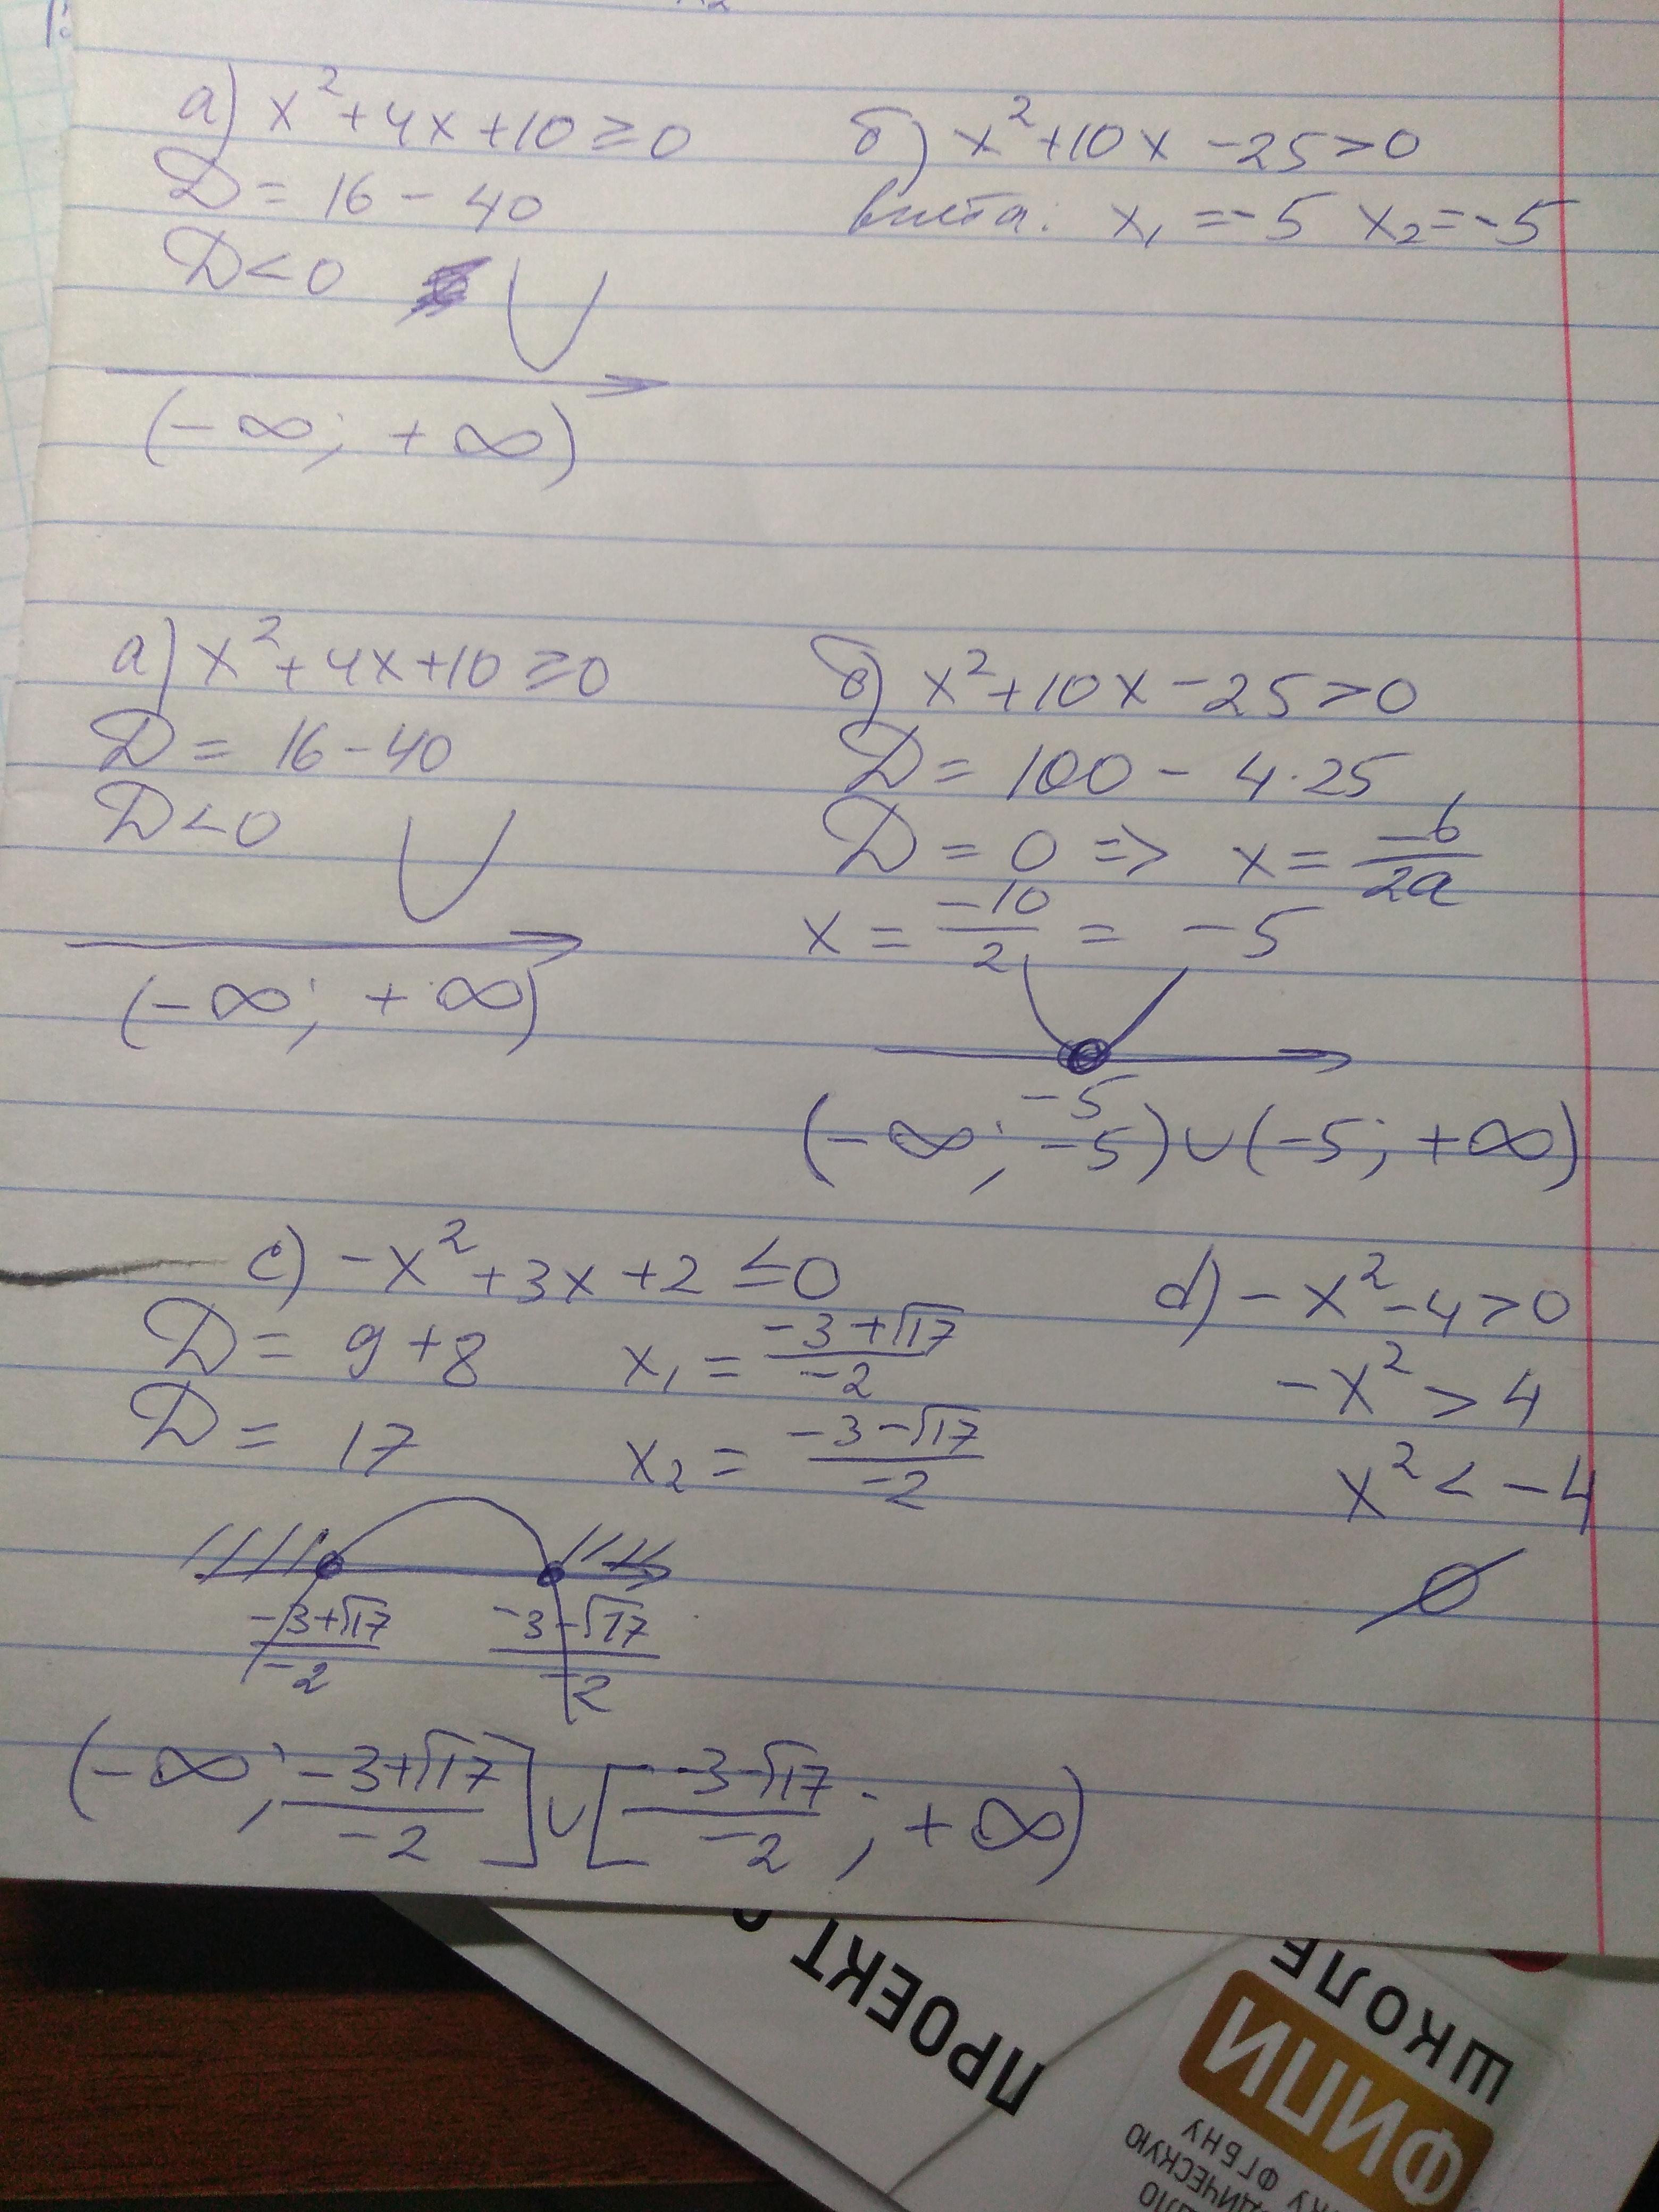 а) x²+4x+10≥0
D = 16 - 40
D<0
(-∞; +∞)
б) x²+10x-25>0
Виета: x₁ =-5 x₂=-5
а) x²+4x+10≥0
D = 16-40
D<0
(-∞; +∞)
б) x²+10x-25>0
D = 100 - 4·25
D = 0 => x = -b/2a
x = -10/2 = -5
-5
(-∞; -5)∪(-5; +∞)
c) -x²+3x+2≤0
D = 9+8 x₁ = (-3+√17)/-2
D = 17 x₂ = (-3-√17)/-2
(-3+√17)/-2 (-3-√17)/-2
(-∞; (-3+√17)/-2]∪[(-3-√17)/-2; +∞)
d) -x²-4>0
-x² > 4
x² < -4
∅
ПРОЕКТ
ШКОЛЕ
ФИПИ
ФГБНУ